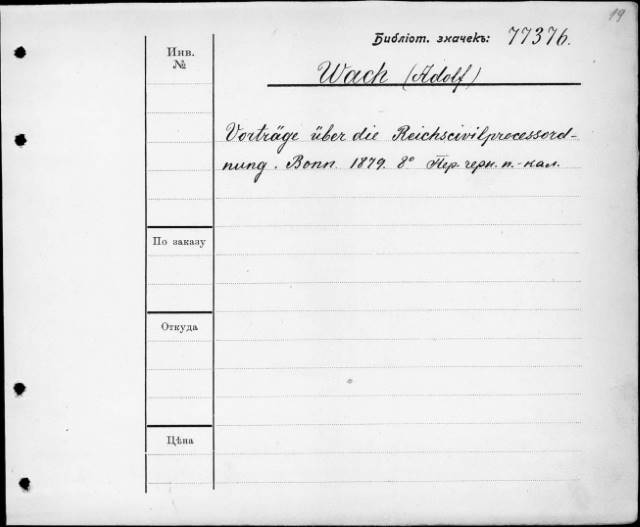 19
Библіот. значекъ: 77376.
Инв.
№
Wach (Adolf)
Vorträge über die Reichscivilprocessord-
nung. Bonn. 1879. 8° Пер. черн. п.-кал.
По заказу
Откуда
Цѣна